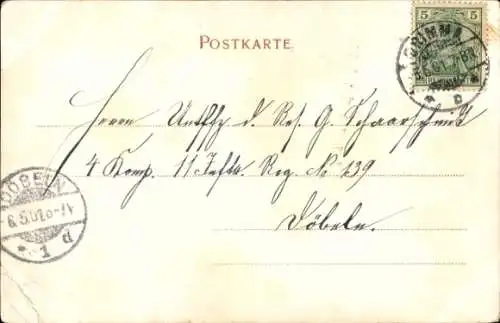 POSTKARTE
5 5
GRIMMA
Herrn Untffz d. Res. G. Schaarschmidt
4 Komp. 11 Inftr. Reg. No 139
Döbeln.
DÖBELN
6.5.01.
* 1 d